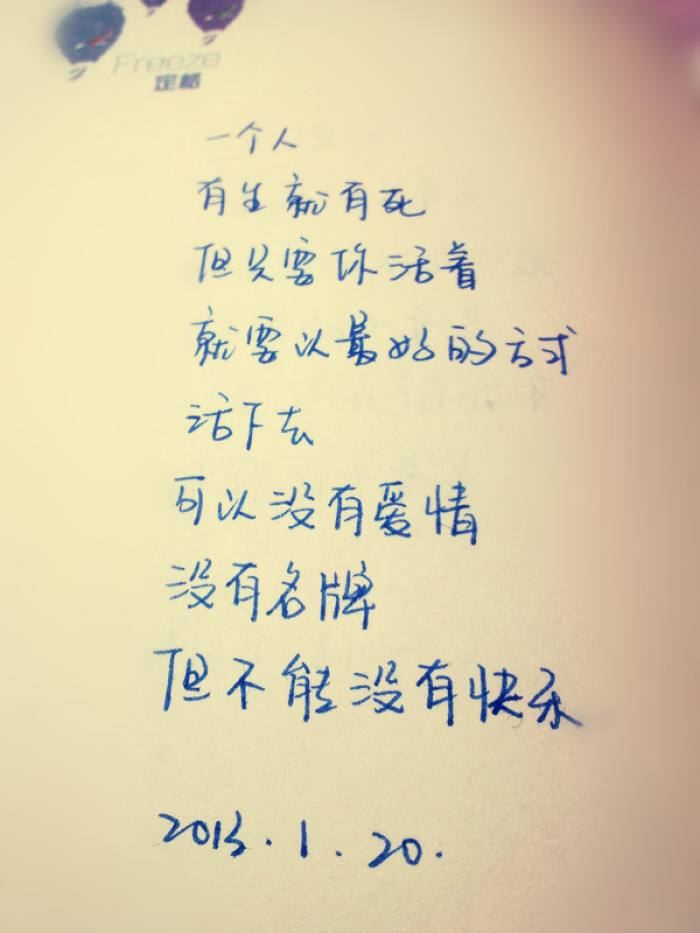 Freeze
定格
一个人
有生就有死
但只要你活着
就要以最好的方式
活下去
可以没有爱情
没有名牌
但不能没有快乐
2013.1.20.